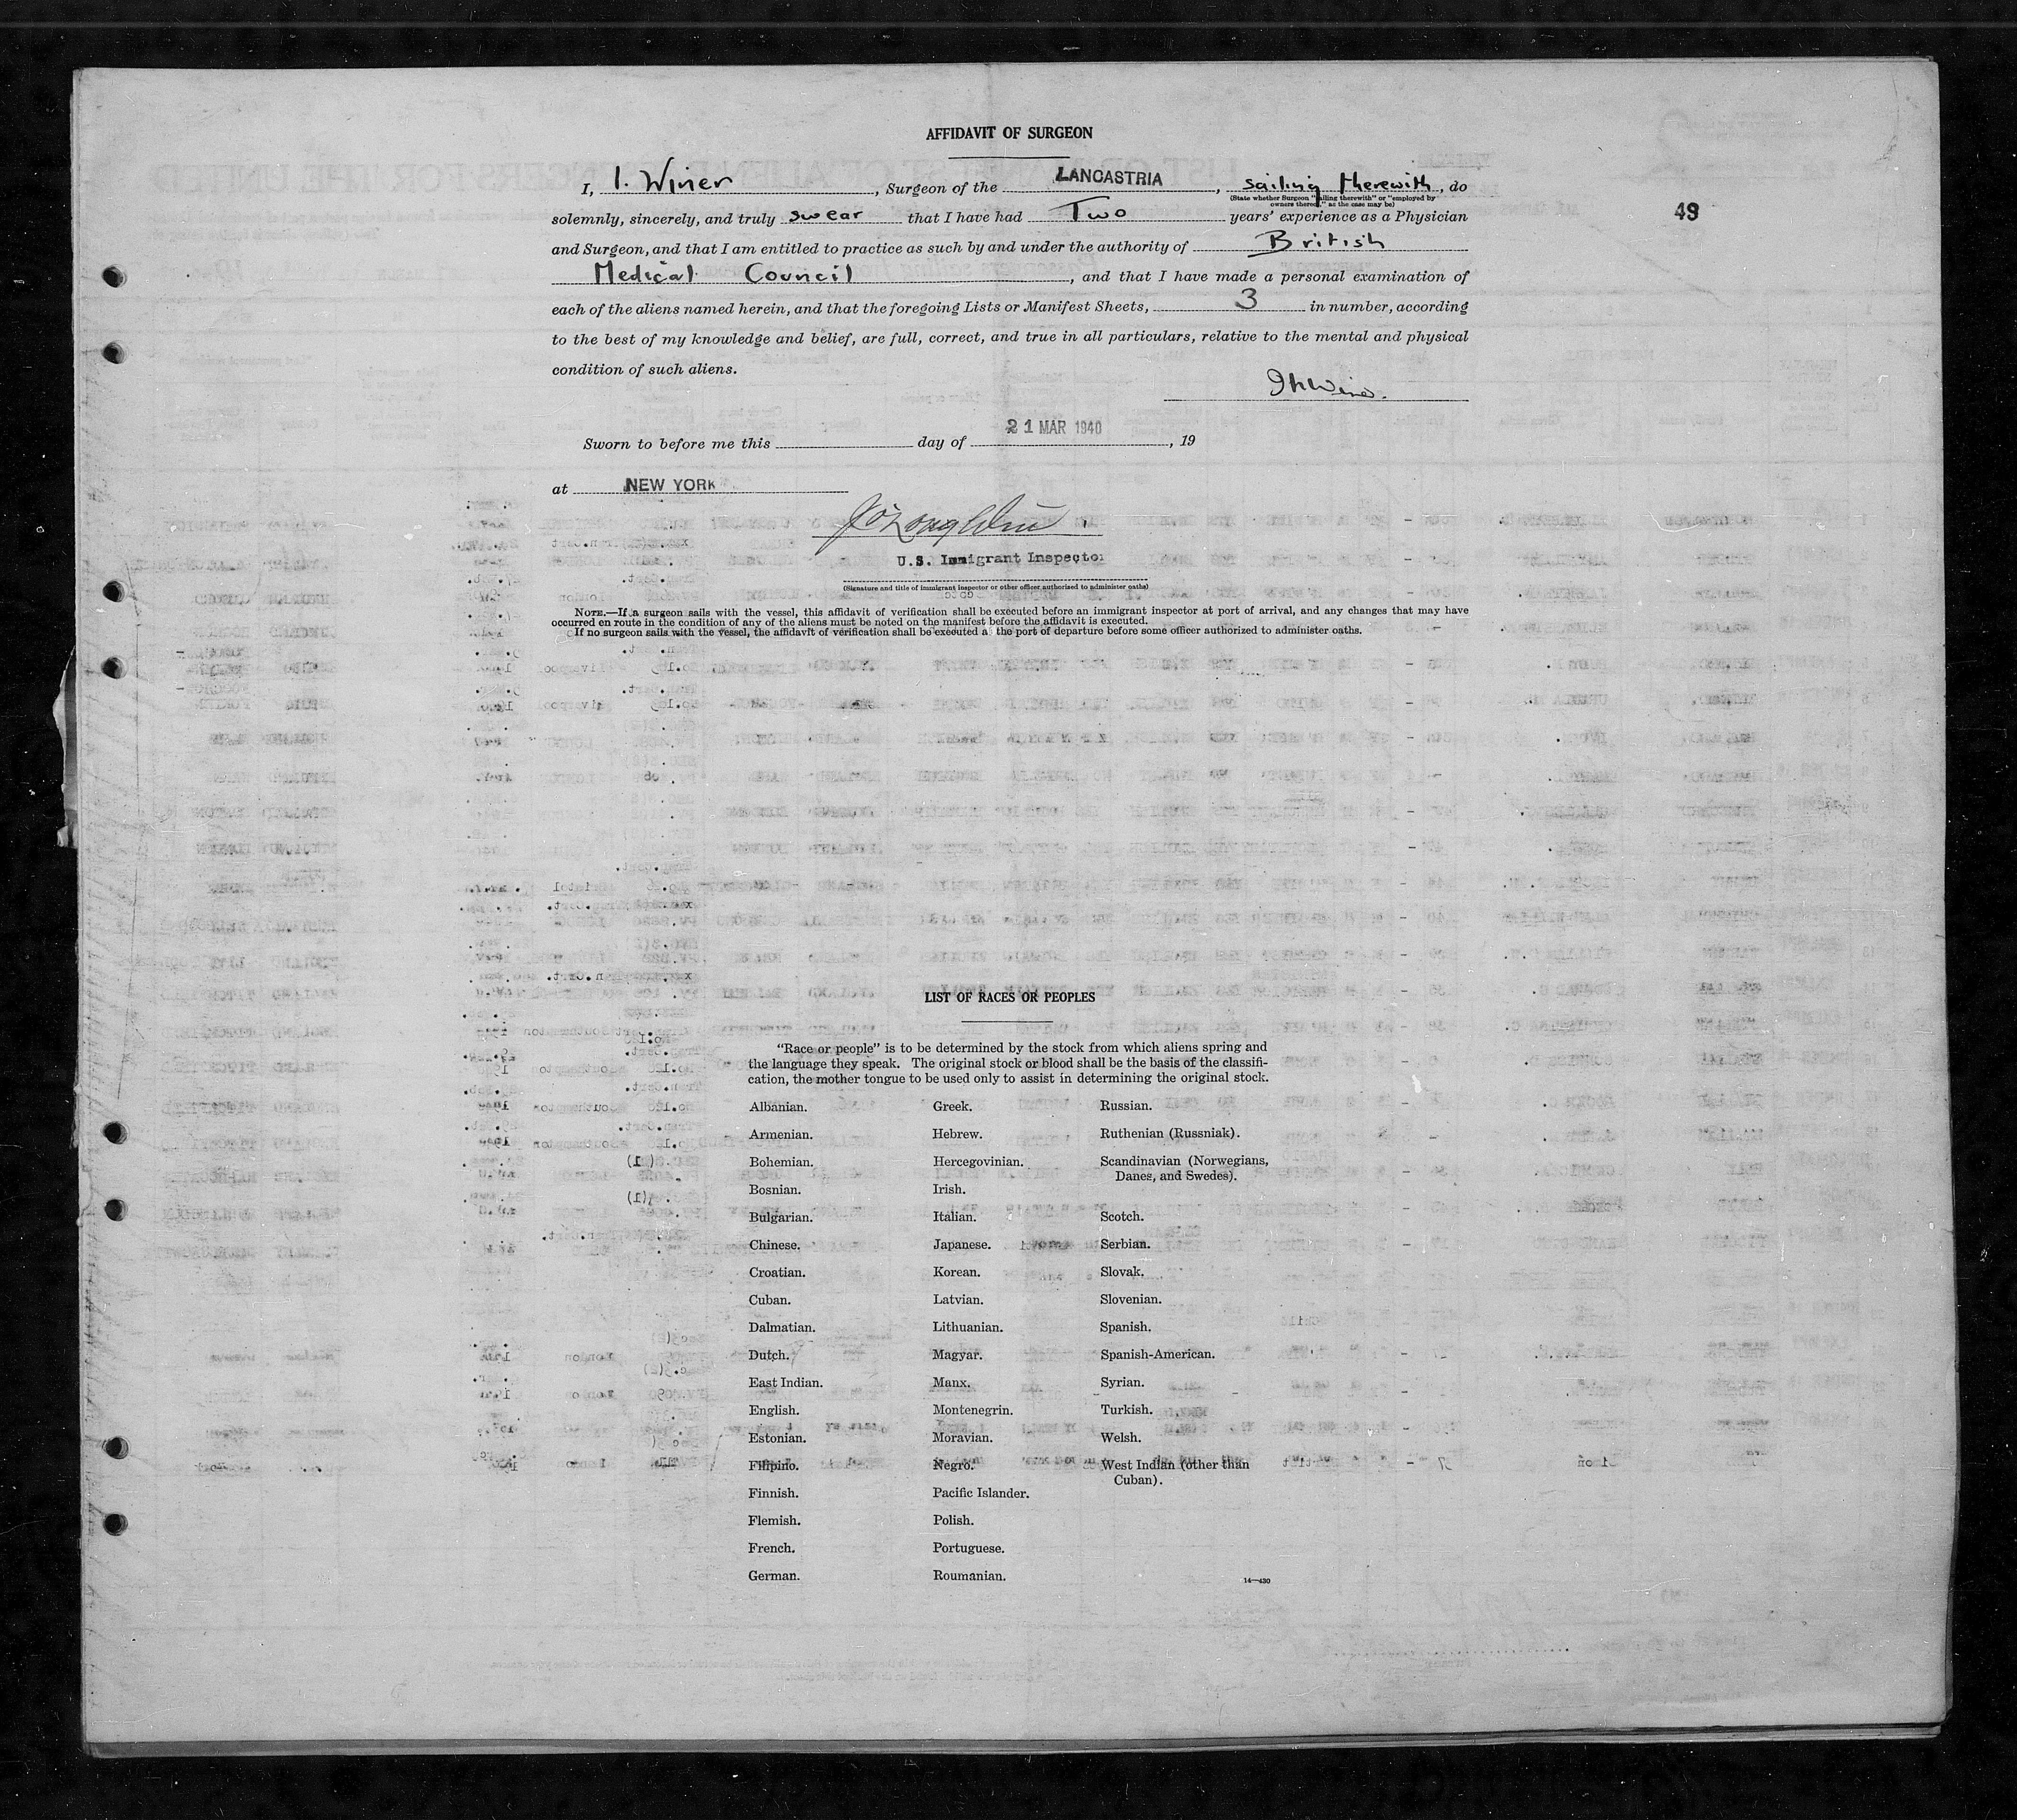 AFFIDAVIT OF SURGEON
I, I. Winer, Surgeon of the LANCASTRIA, sailing therewith, do
(State whether Surgeon "sailing therewith" or "employed by
owners thereof," as the case may be)
49
solemnly, sincerely, and truly swear that I have had Two years' experience as a Physician
and Surgeon, and that I am entitled to practice as such by and under the authority of British
Medical Council, and that I have made a personal examination of
each of the aliens named herein, and that the foregoing Lists or Manifest Sheets, 3 in number, according
to the best of my knowledge and belief, are full, correct, and true in all particulars, relative to the mental and physical
condition of such aliens.
Sworn to before me this day of 21 MAR 1940, 19
at NEW YORK
U.S. Immigrant Inspector
(Signature and title of immigrant inspector or other officer authorized to administer oaths)
NOTE.—If a surgeon sails with the vessel, this affidavit of verification shall be executed before an immigrant inspector at port of arrival, and any changes that may have
occurred en route in the condition of any of the aliens must be noted on the manifest before the affidavit is executed.
If no surgeon sails with the vessel, the affidavit of verification shall be executed at the port of departure before some officer authorized to administer oaths.
LIST OF RACES OR PEOPLES
"Race or people" is to be determined by the stock from which aliens spring and
the language they speak. The original stock or blood shall be the basis of the classifi-
cation, the mother tongue to be used only to assist in determining the original stock.
Albanian.
Armenian.
Bohemian.
Bosnian.
Bulgarian.
Chinese.
Croatian.
Cuban.
Dalmatian.
Dutch.
East Indian.
English.
Estonian.
Filipino.
Finnish.
Flemish.
French.
German.
Greek.
Hebrew.
Hercegovinian.
Irish.
Italian.
Japanese.
Korean.
Latvian.
Lithuanian.
Magyar.
Manx.
Montenegrin.
Moravian.
Negro.
Pacific Islander.
Polish.
Portuguese.
Roumanian.
Russian.
Ruthenian (Russniak).
Scandinavian (Norwegians,
Danes, and Swedes).
Scotch.
Serbian.
Slovak.
Slovenian.
Spanish.
Spanish-American.
Syrian.
Turkish.
Welsh.
West Indian (other than
Cuban).
14—430